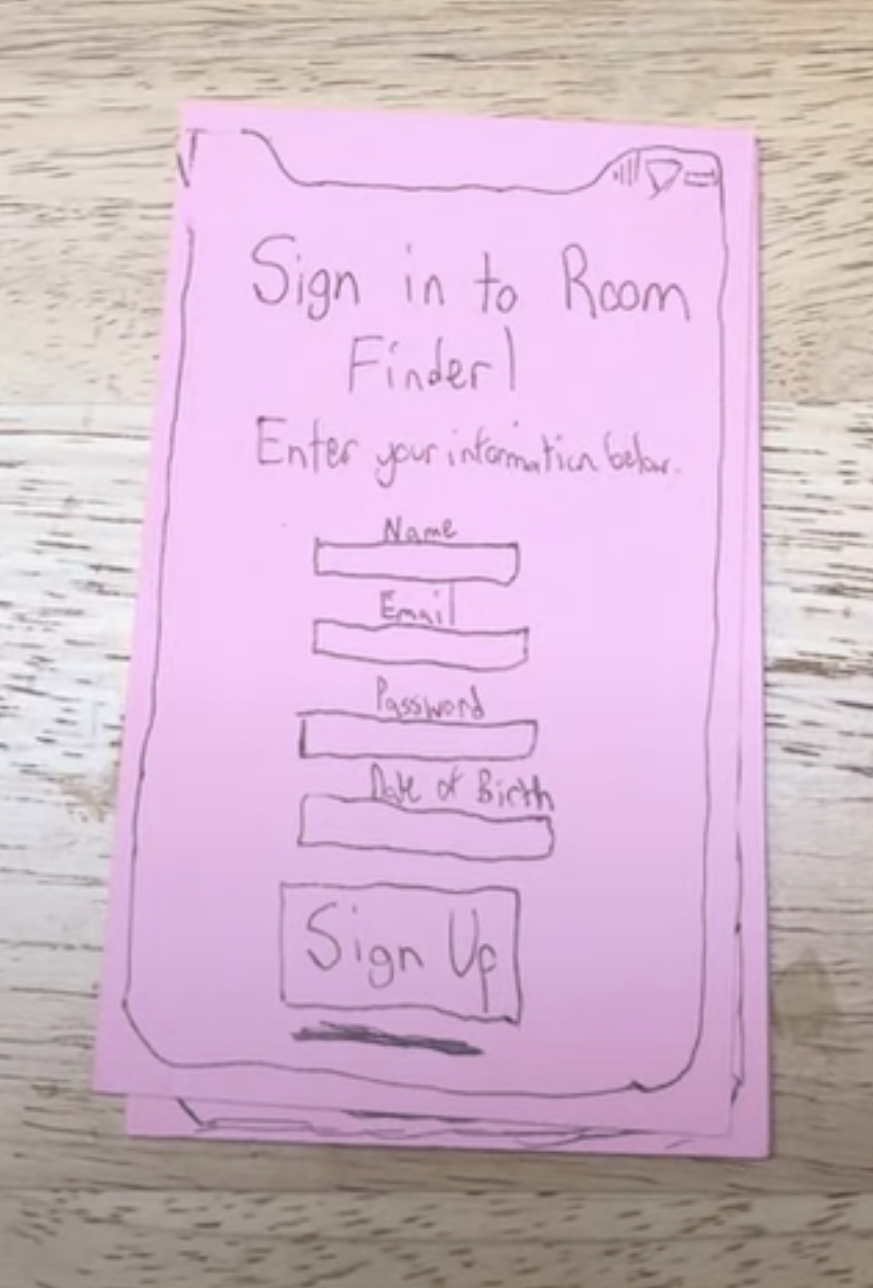 Sign in to Room
Finder!
Enter your information below.
Name
Email
Password
Date of Birth
Sign Up